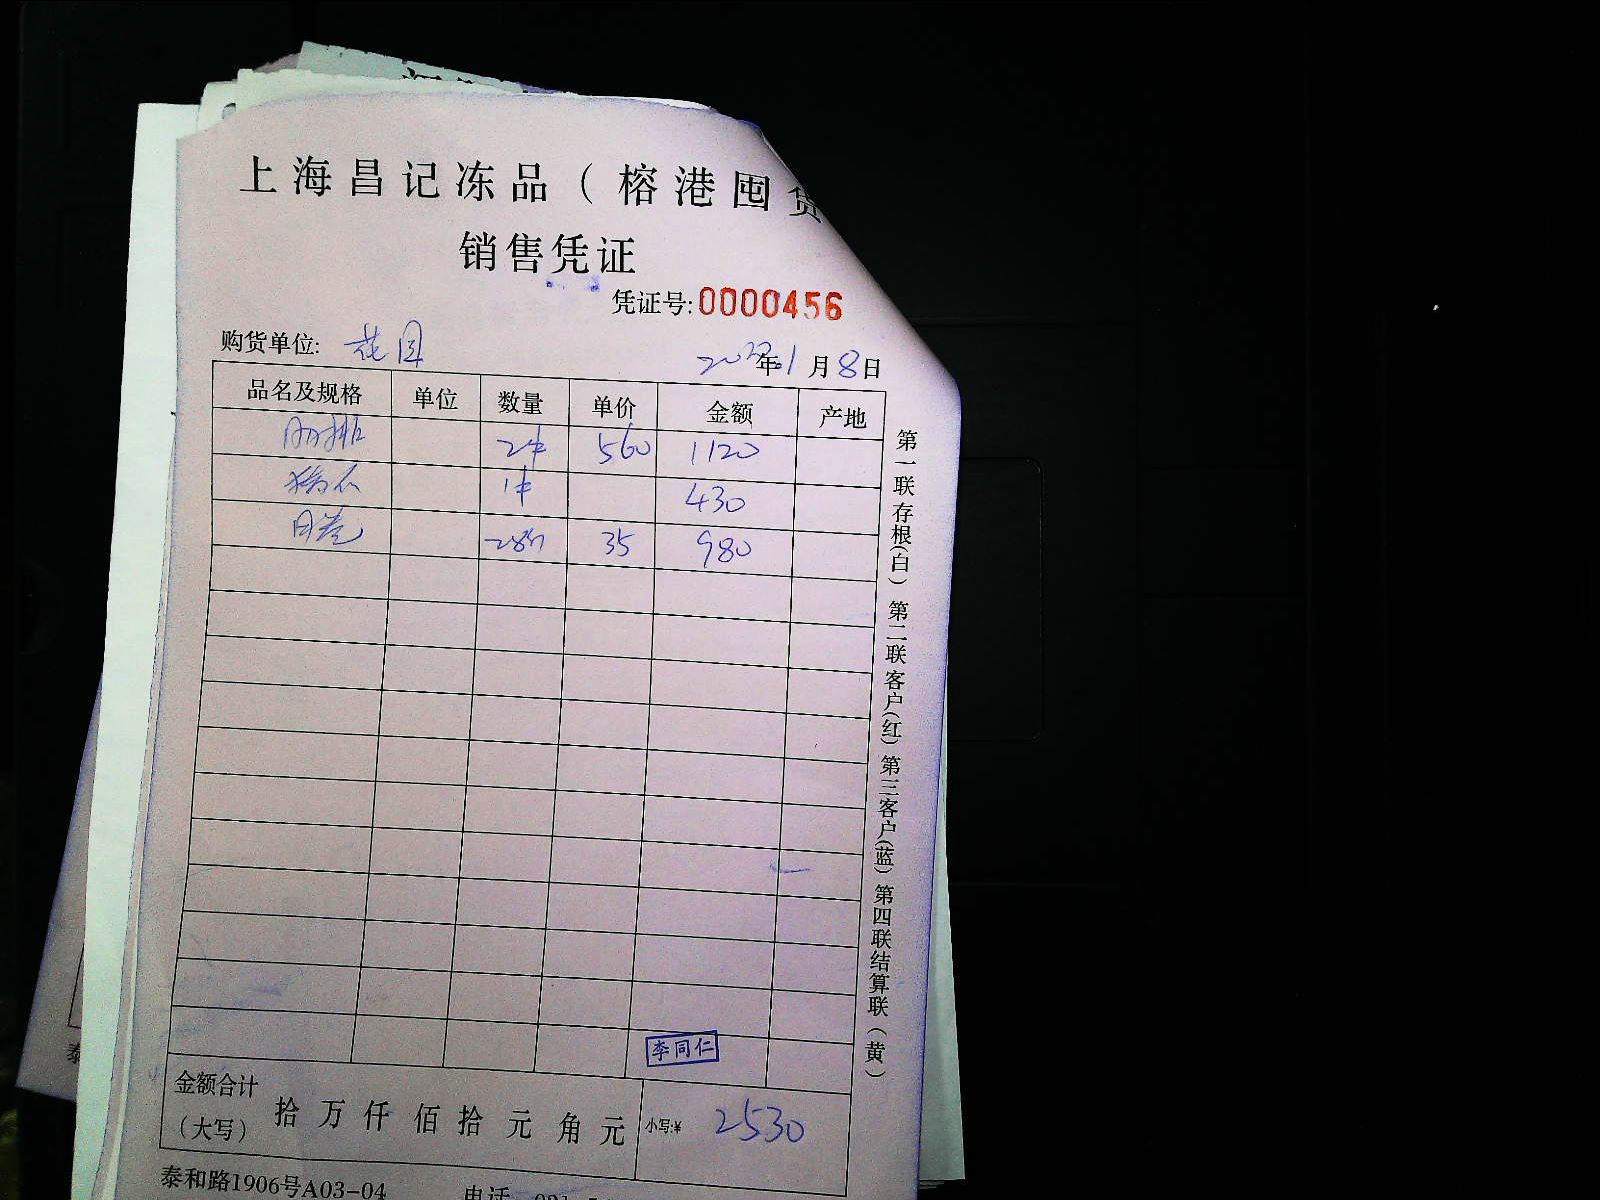 上海昌记冻品（榕港囤货
销售凭证
凭证号:0000456
购货单位: 花园
2022年1月8日
品名及规格 单位 数量 单价 金额 产地
肋排 2件 560 1120
1件 430
28斤 35 980
李同仁
金额合计
（大写） 拾 万 仟 佰 拾 元 角 元 小写:¥ 2530
泰和路1906号A03-04 电话
第一联存根(白) 第二联客户(红) 第三客户(蓝) 第四联结算联(黄)